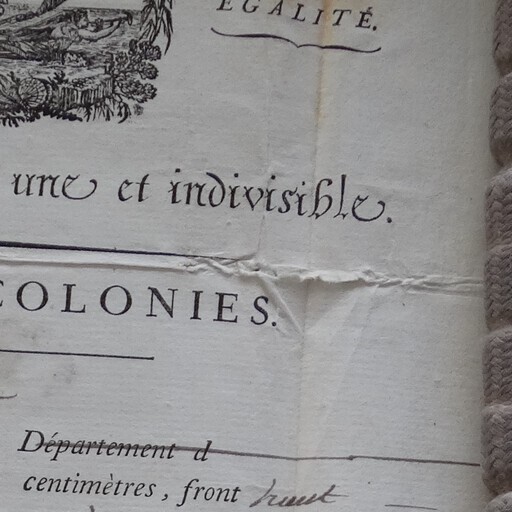 ÉGALITÉ.
une et indivisible.
COLONIES.
Département d
centimètres, front haut